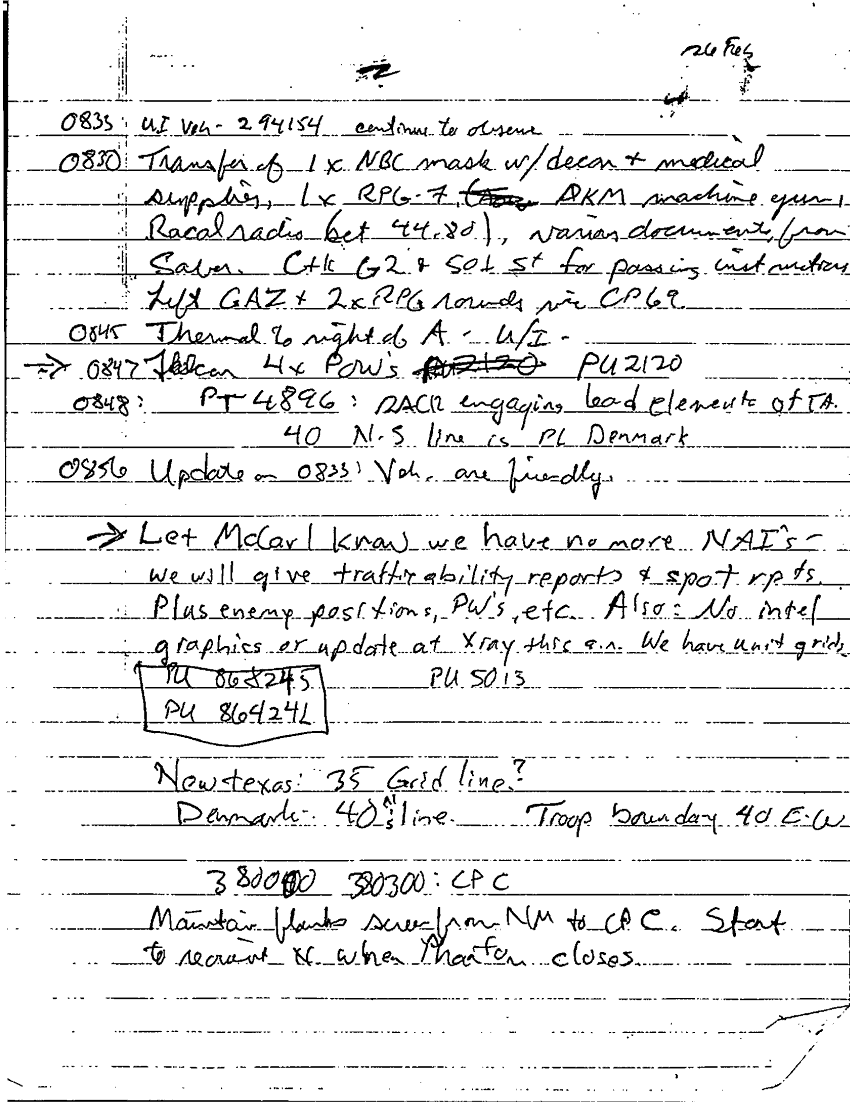 26 Feb
0833: U/I Veh- 294154 continue to observe
0830 Transfer of 1x NBC mask w/decon + medical
supplies, 1x RPG-7, DKM machine gun,
Racal radio (set 44.80), various documents, from
Saber. G2 & for passing instructions
Left GAZ + 2xRPG rounds CP69
0845 Thermal to right of A - U/I -
→ 0847 4x POW's PU2120 PU2120
0848: PT 4896: 2ACR engaging lead elements of TA.
40 N-S line is PL Denmark
0856 Update on 0833: Veh. are friendly.
→ Let McCarl know we have no more NAI's -
we will give trafficability reports & spot rpts.
Plus enemy positions, PW's, etc. Also: No intel
graphics or update at Xray this a.m. We have unit grids
PU 868245 PU 5013
PU 864242
New texas: 35 Grid line?
Denmark- 40 N-S line. Troop boundary 40 E-W
380000 380300: CPC
Maintain flank screen from NM to CPC. Start
to when Phantom closes.